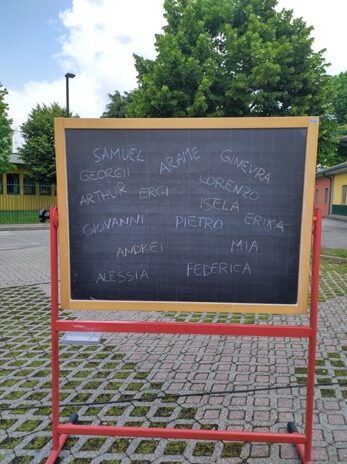 SAMUEL ARAME GINEVRA
GEORGII LORENZO
ARTHUR ERGI
ISELA
GIOVANNI PIETRO ERIKA
ANDREI MIA
ALESSIA FEDERICA